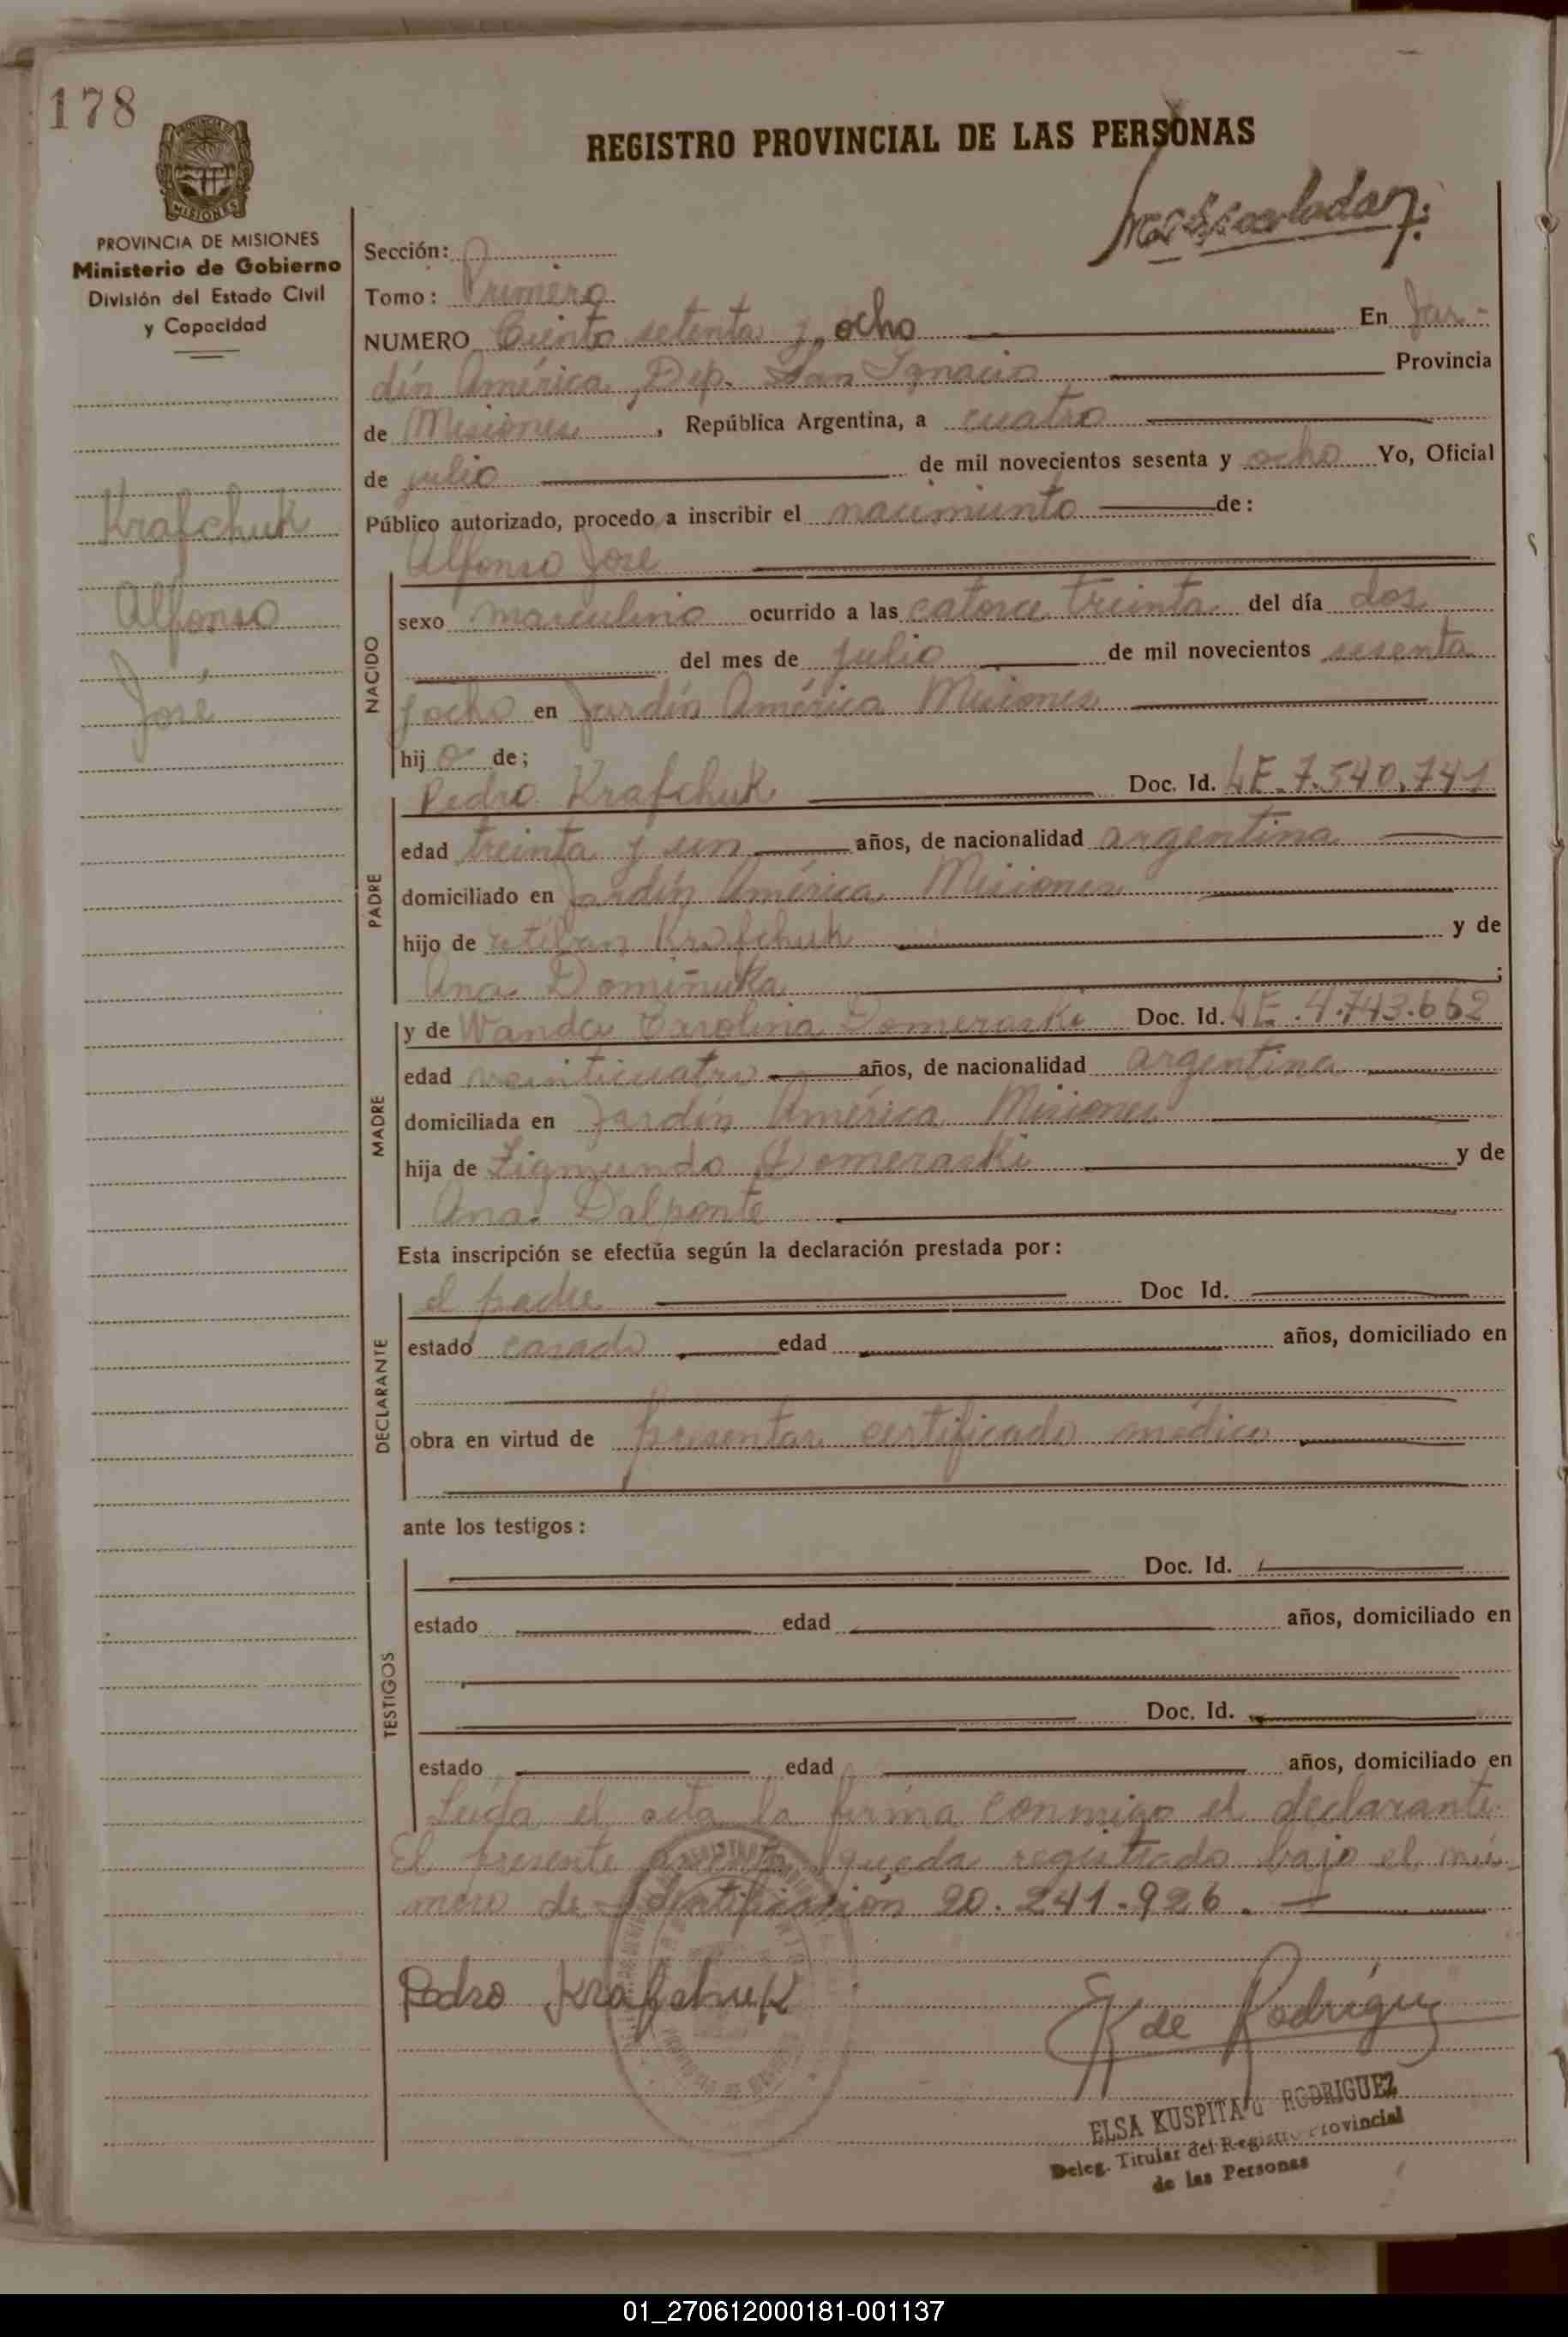 178
REGISTRO PROVINCIAL DE LAS PERSONAS
PROVINCIA DE MISIONES
Ministerio de Gobierno
División del Estado Civil
y Capacidad
Krafchuk
Alfonso
José
Sección:
Tomo: Primero
NUMERO Ciento setenta y ocho En Jar-
dín América, Dep. San Ignacio Provincia
de Misiones, República Argentina, a cuatro
de julio de mil novecientos sesenta y ocho Yo, Oficial
Público autorizado, procedo a inscribir el nacimiento de:
Alfonso José
NACIDO
sexo masculino ocurrido a las catorce treinta del día dos
del mes de julio de mil novecientos sesenta
y ocho en Jardín América Misiones
hijo de;
PADRE
Pedro Krafchuk Doc. Id. LE. 7.540.741
edad treinta y un años, de nacionalidad argentina
domiciliado en Jardín América Misiones
hijo de Krafchuk y de
Ana Domiñuka;
MADRE
y de Wanda Carolina Domeraski Doc. Id. LE. 4.743.662
edad veinticuatro años, de nacionalidad argentina
domiciliada en Jardín América Misiones
hija de Zigmundo Domeraski y de
Ana Dalponte
Esta inscripción se efectúa según la declaración prestada por:
DECLARANTE
el padre Doc Id.
estado casado edad años, domiciliado en
obra en virtud de presentar certificado médico
ante los testigos:
TESTIGOS
Doc. Id.
estado edad años, domiciliado en
Doc. Id.
estado edad años, domiciliado en
Leída el acta la firma conmigo el declarante.
El presente asiento queda registrado bajo el nú-
mero de identificación 20.241.926.-
Pedro Krafchuk
EK de Rodríguez
ELSA KUSPITA d RODRIGUEZ
Deleg. Titular del Registro Provincial
de las Personas
01_270612000181-001137